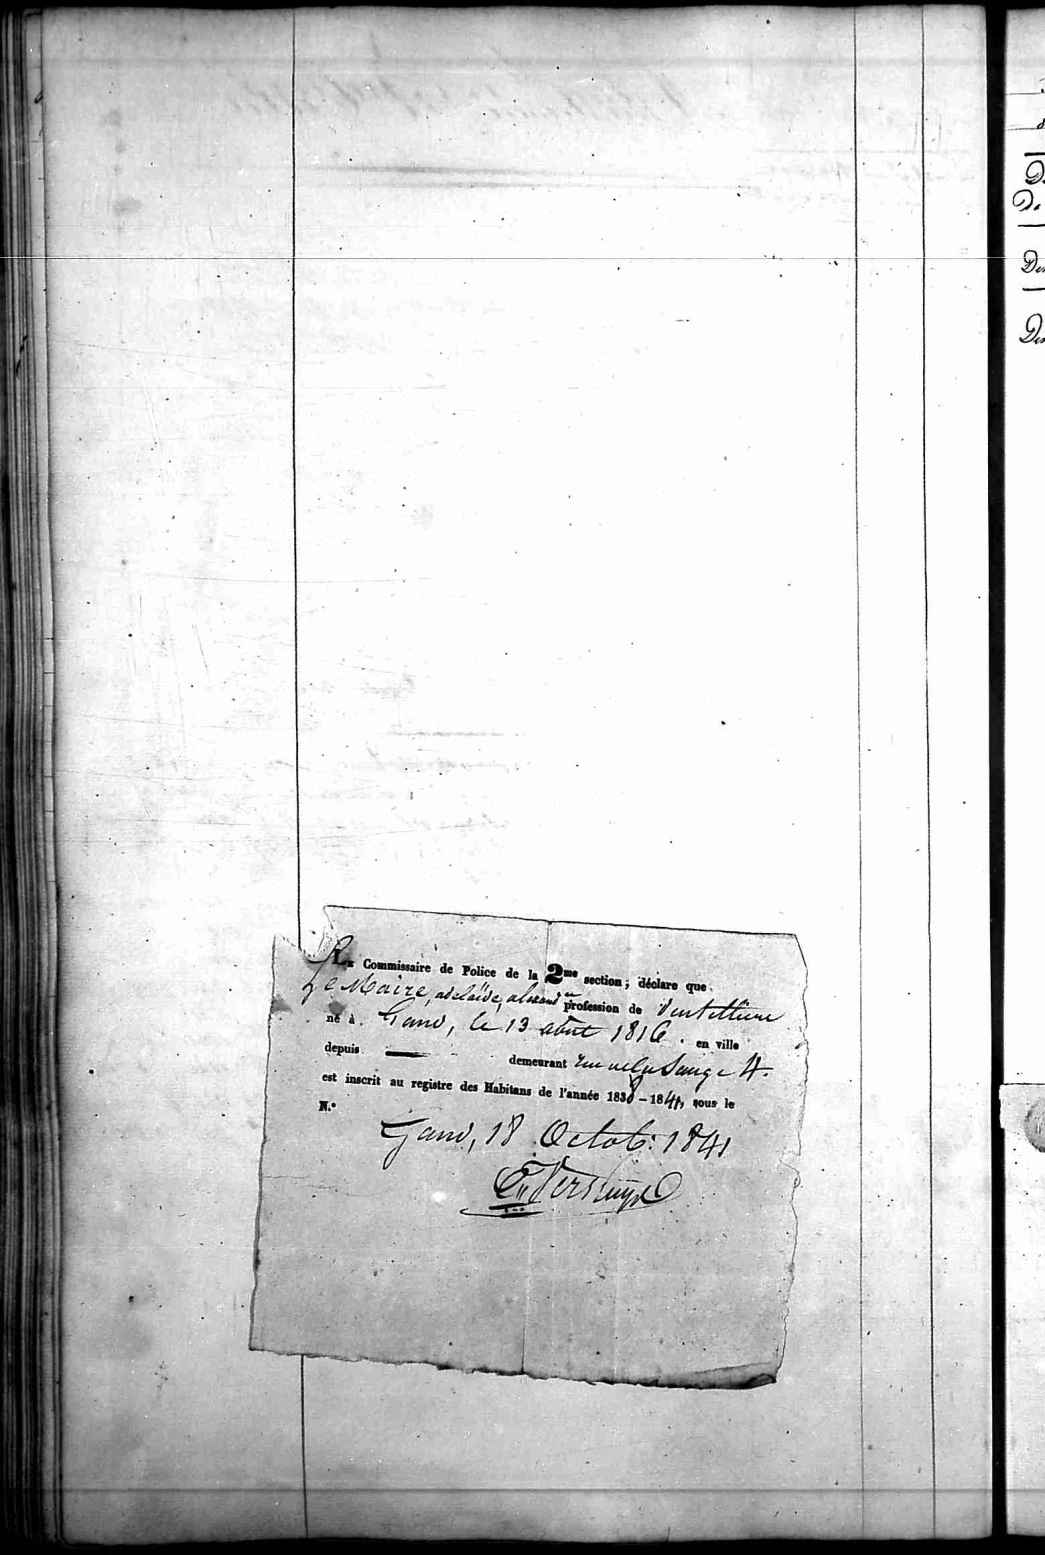 Le Commissaire de Police de la 2me section; déclare que
Le Maire, adelaïde, profession de
né à Gand, le 13 août 1816. en ville
depuis — demeurant rue 4.
est inscrit au registre des Habitans de l'année 1838-1841, sous le
N.°
Gand, 18 Octob: 1841